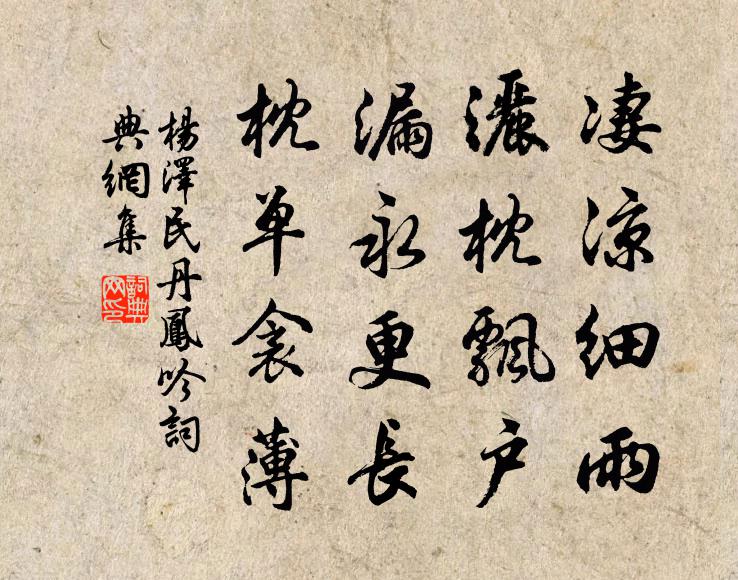 凄凉細雨
灑枕飄户
漏永更長
枕单衾薄
楊澤民丹鳳吟詞
典網集
詞典
网印